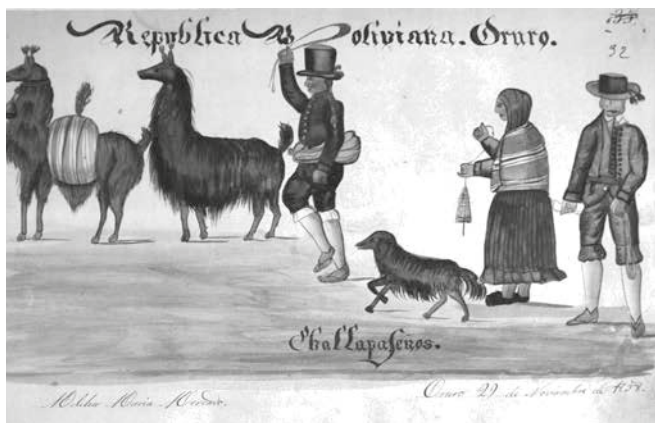 Republica Boliviana. Oruro.
32
Challapaseños.
Melchor Maria Mercado.
Oruro 29 de Noviembre de